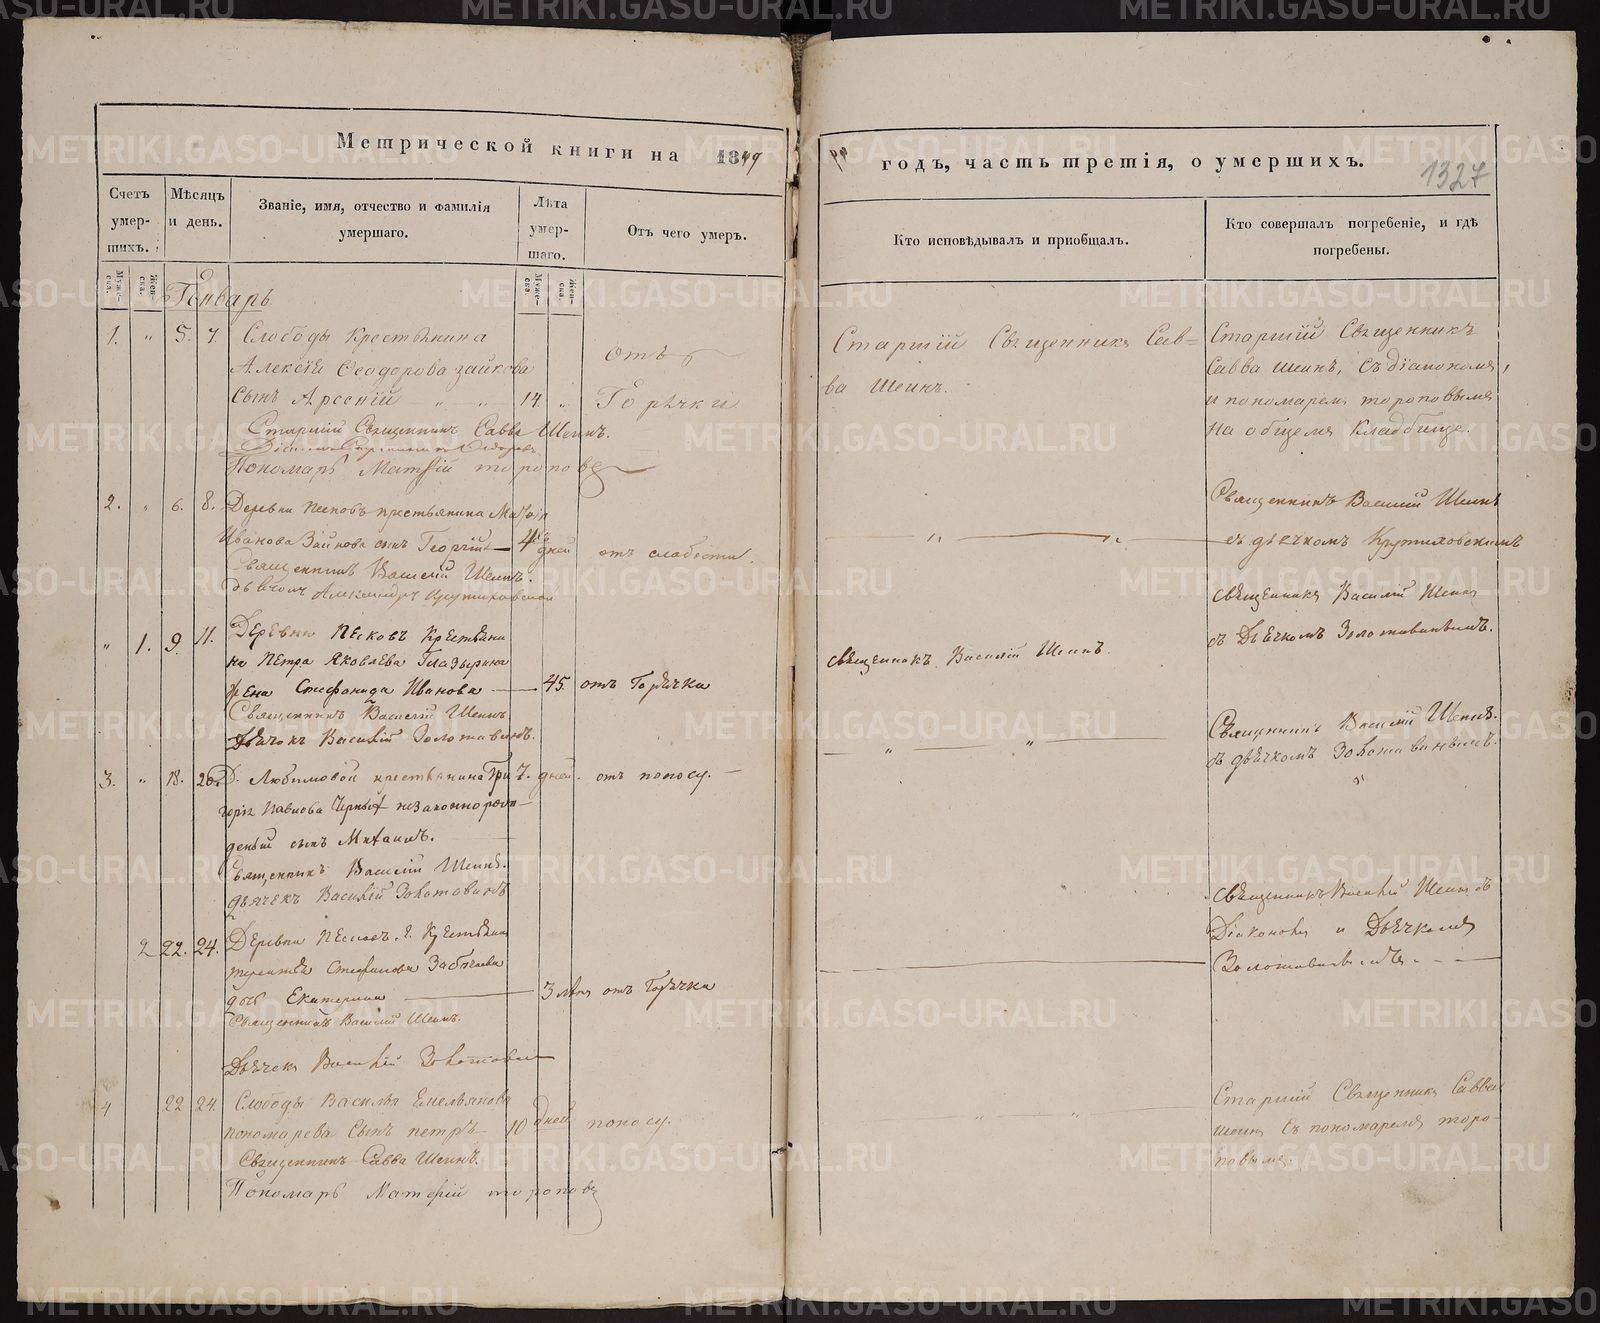 Метрической книги на 1849
годъ, часть третія, о умершихъ.
1327
Счетъ умер-шихъ.
Мѣсяцъ и день.
Званіе, имя, отчество и фамилія умершаго.
Лѣта умер-шаго.
Отъ чего умеръ.
Кто исповѣдывалъ и приобщалъ.
Кто совершалъ погребеніе, и гдѣ погребены.
Муже-ска.
Жен-ска.
Муже-ска.
Жен-ска.
Генварь
1. " 5. 7. Слободы Крестьянина
Алексѣя Ѳеодорова Зайкова
сынъ Арсеній " " 14. " отъ Горячки
Старшій Священникъ Савва Шеинъ.
Пономарь Матѳій Тороповъ
Старшій Священникъ Сав=
ва Шеинъ.
Старшій Священникъ
Савва Шеинъ, съ діакономъ,
и пономаремъ Тороповымъ
на общемъ кладбище.
2. " 6. 8. Деревни Песковъ крестьянина
Иванова Зайкова сынъ Георгій 4 дней отъ слабости
Священникъ Василій Шеинъ.
Александръ Крутиховской
Священникъ Василій Шеинъ
съ дьячкомъ Крутиховскимъ
" 1. 9. 11. Деревни Песковъ Крестьяни
на Петра Яковлева Глазырина
жена Стефанида Иванова 45. отъ Горячки
Священникъ Василій Шеинъ
Дьячокъ Василій Золотавинъ.
Священникъ Василій Шеинъ.
Священникъ Василій Шеинъ
съ Дьячкомъ Золотавинымъ.
3. " 18. 20. Д. Любимовой крестьянина Гри
горія Павлова незаконнорож
деный сынъ Михаилъ. 7. дней. отъ поносу.
Священникъ Василій Шеинъ.
дьячекъ Василій Золотавинъ
Священникъ Василій Шеинъ.
съ дьячкомъ Золотавинымъ.
2 22. 24. Деревни Крестьянина
Стефанова
дочь Екатерина 3 отъ Горячки
Священникъ Василій Шеинъ.
Дьячекъ Василій Золотавинъ
Священникъ Василій Шеинъ съ
Діакономъ и Дьячкомъ
Золотавинымъ.
4 22 24. Слободы Василья Емельянова
пономарева сынъ петръ 10 дней поносу.
Священникъ Савва Шеинъ.
Пономарь Матѳій Тороповъ
Старшій Священникъ Савва
Шеинъ съ пономаремъ Торо-
повымъ.
METRIKI.GASO-URAL.RU